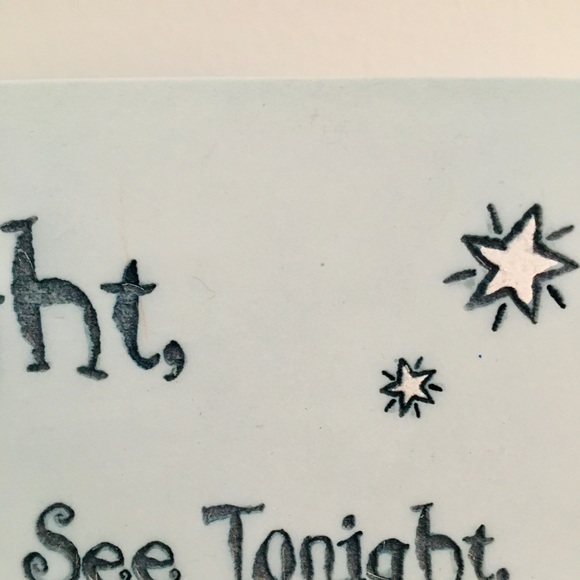 ht,
See Tonight,